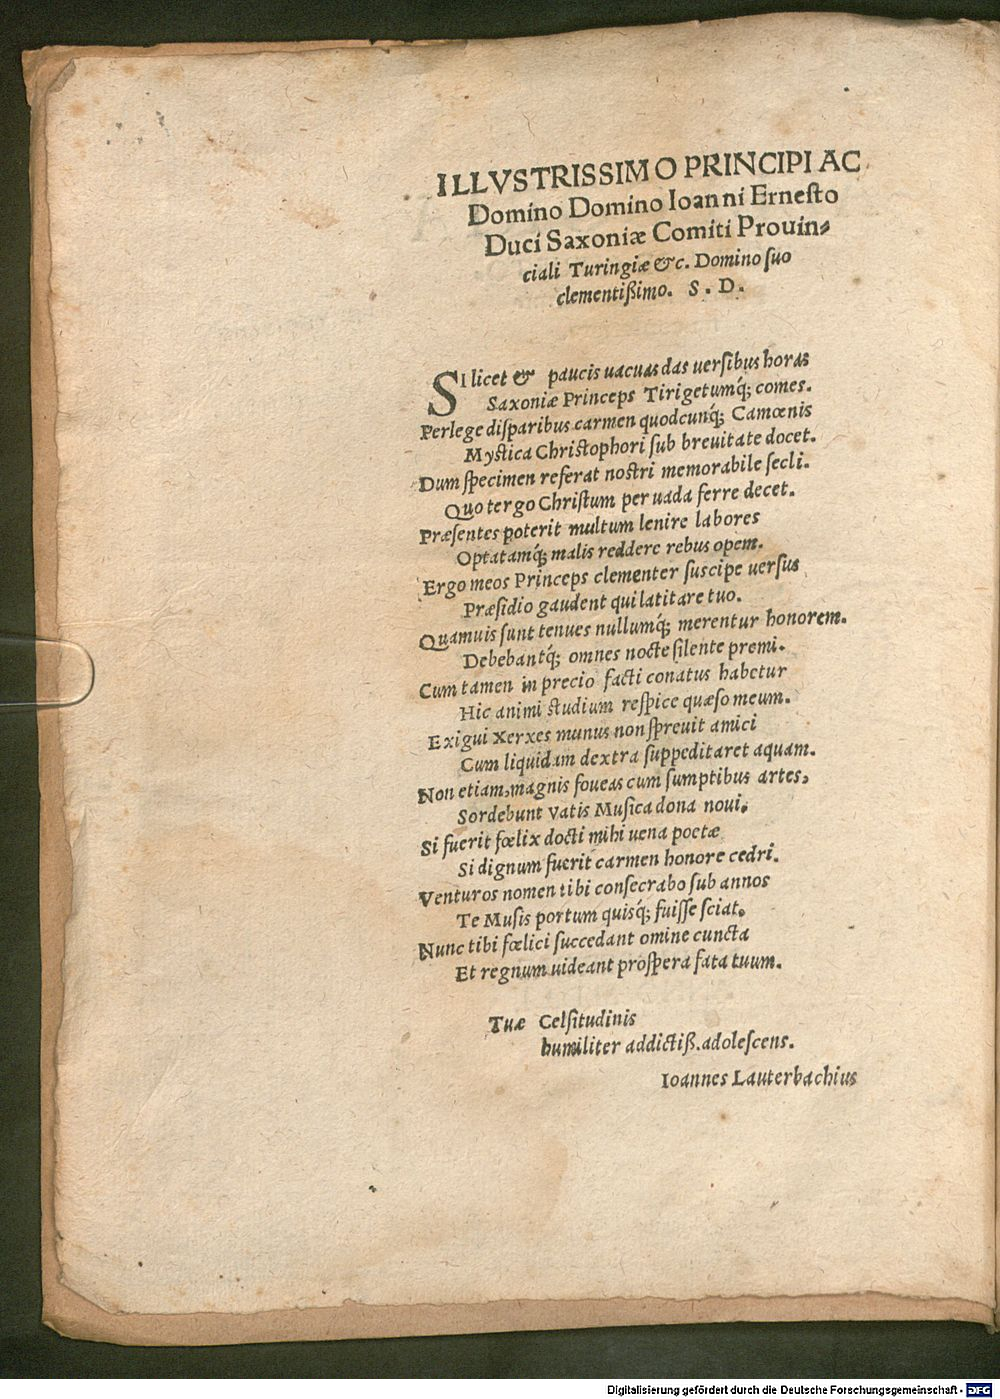 ILLVSTRISSIMO PRINCIPI AC
Domino Domino Ioanni Ernesto
Duci Saxoniæ Comiti Prouin⸗
ciali Turingiæ &c. Domino suo
clementißimo. S. D.
SI licet & paucis uacuas das uersibus horas
Saxoniæ Princeps Tirigetumq́; comes.
Perlege disparibus carmen quodcunq́; Camœnis
Mystica Christophori sub breuitate docet.
Dum specimen referat nostri memorabile secli.
Quo tergo Christum per uada ferre decet.
Præsentes poterit multum lenire labores
Optatamq́; malis reddere rebus opem.
Ergo meos Princeps clementer suscipe uersus
Præsidio gaudent qui latitare tuo.
Quamuis sunt tenues nullumq́; merentur honorem.
Debebantq́; omnes nocte silente premi.
Cum tamen in precio facti conatus habetur
Hic animi studium respice quæso meum.
Exigui Xerxes munus non spreuit amici
Cum liquidam dextra suppeditaret aquam.
Non etiam, magnis foueas cum sumptibus artes,
Sordebunt Vatis Musica dona noui.
Si fuerit fœlix docti mihi uena poetæ
Si dignum fuerit carmen honore cedri.
Venturos nomen tibi consecrabo sub annos
Te Musis portum quisq́; fuisse sciat.
Nunc tibi fœlici succedant omine cuncta
Et regnum uideant prospera fata tuum.
Tuæ Celsitudinis
humiliter addictiß. adolescens.
Ioannes Lauterbachius
Digitalisierung gefördert durch die Deutsche Forschungsgemeinschaft - DFG